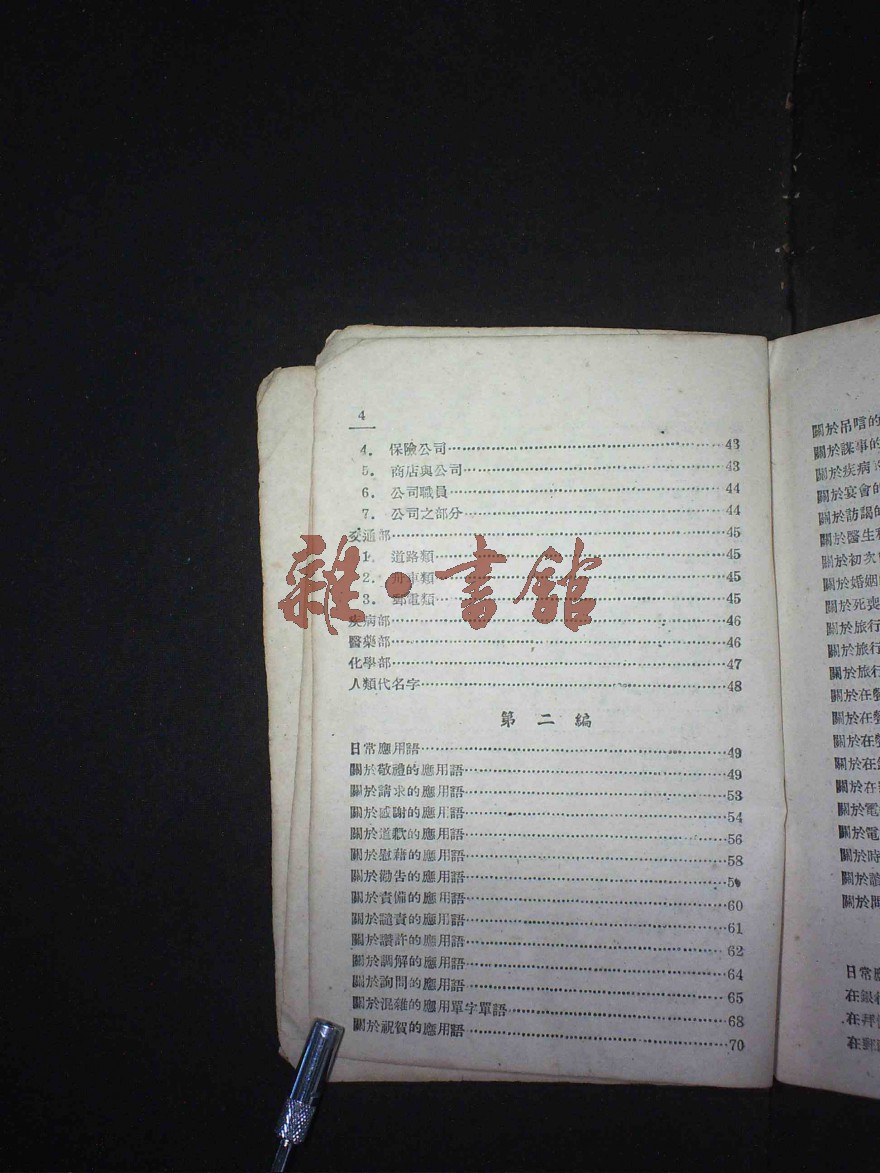 4
4. 保險公司……43
5. 商店與公司……43
6. 公司職員……44
7. 公司之部分……44
交通部……45
1. 道路類……45
2. 舟車類……45
3. 郵電類……45
疾病部……46
醫藥部……46
化學部……47
人類代名字……48
第二編
日常應用語……49
關於敬禮的應用語……49
關於請求的應用語……53
關於感謝的應用語……54
關於道歉的應用語……56
關於慰藉的應用語……58
關於勸告的應用語……5
關於責備的應用語……60
關於譴責的應用語……61
關於讚許的應用語……62
關於調解的應用語……64
關於詢問的應用語……65
關於混雜的應用單字單語……68
關於祝賀的應用語……70
雜·書館
關於吊唁的
關於謀事的
關於疾病
關於宴會的
關於訪謁的
關於醫生
關於初次
關於婚姻
關於死喪
關於旅行
關於旅行
關於旅行
關於在
關於在
關於在
關於在
關於在
關於電
關於電
關於時
關於
關於問
日常
在銀
在拜
在郵